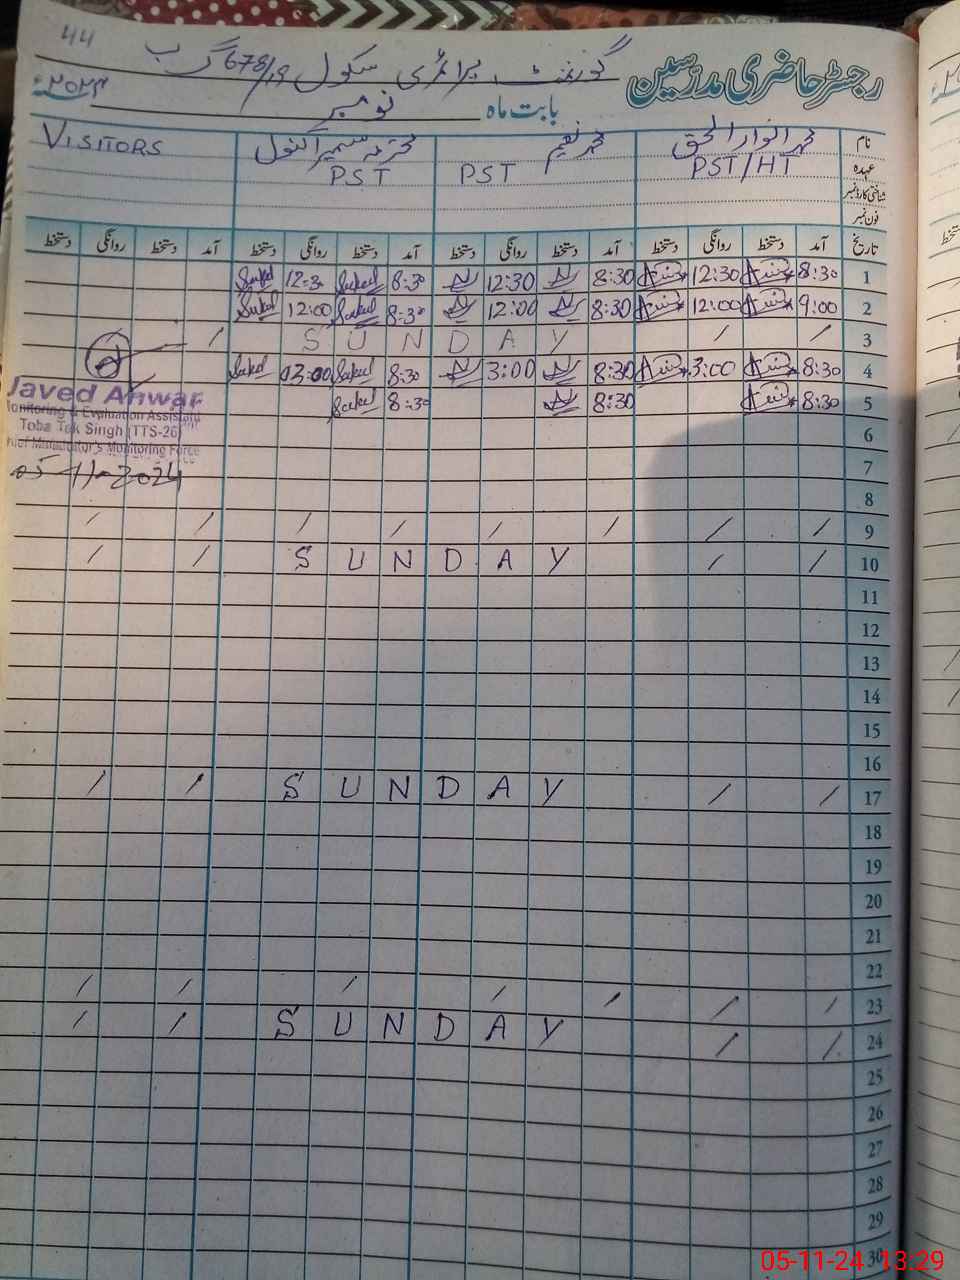 44
رجسٹر حاضری مدرسین
گورنمنٹ پرائمری سکول 678/9 گ ب
بابت ماہ نومبر ۲۰۲۴ء
نام محمد انوار الحق محمد نعیم محترمہ سمیرا کنول VISITORS
عہدہ PST/HT PST PST
شناختی کارڈ نمبر
فون نمبر
تاریخ آمد دستخط روانگی دستخط آمد دستخط روانگی دستخط آمد دستخط روانگی دستخط آمد دستخط روانگی دستخط
1 8:30 12:30 8:30 12:30 8:30 12:30
2 9:00 12:00 8:30 12:00 8:30 12:00
3 / / S U N D A Y /
4 8:30 3:00 8:30 3:00 8:30 03:00
5 8:30 8:30 8:30
6
7
8
9 / / / / / / / /
10 / / S U N D A Y / /
11
12
13
14
15
16
17 / / S U N D A Y / /
18
19
20
21
22
23 / / / / / / /
24 / / S U N D A Y / /
25
26
27
28
29
30
Javed Anwar
Monitoring & Evaluation Assistant
Toba Tek Singh (TTS-26)
Monitoring Force
05-11-2024
05-11-24 13:29